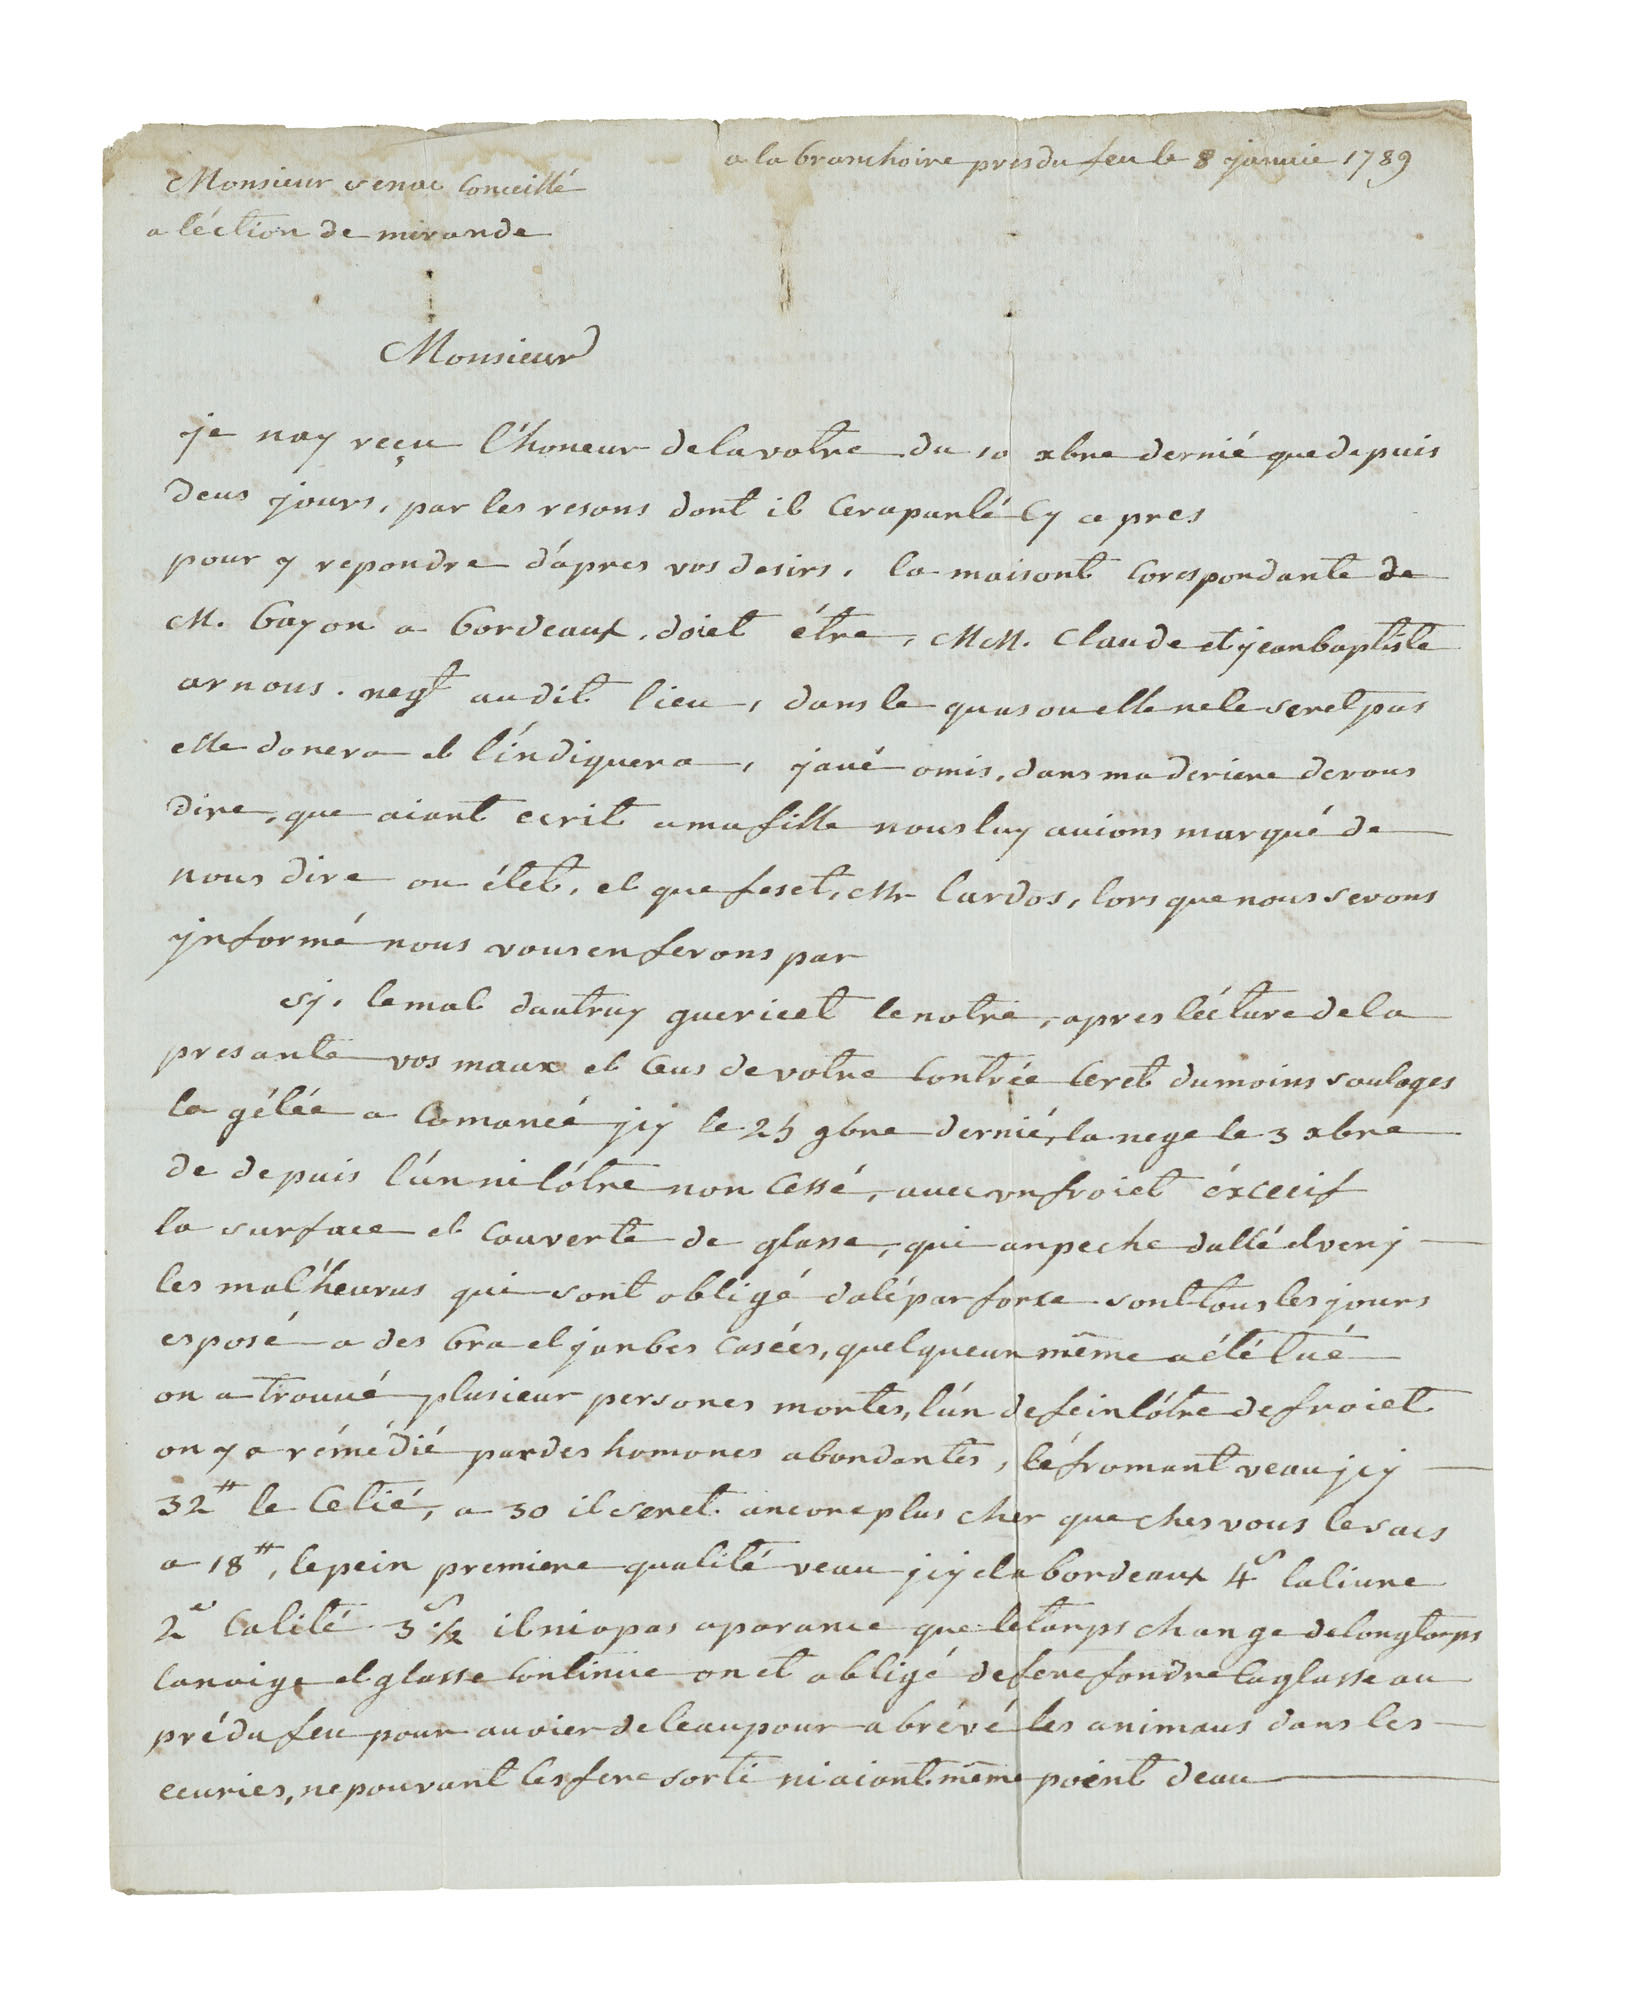 a la branchoire pres du feu le 8 janvie 1789
Monsieur senac Conceillé
a léction de mirande
Monsieur
je nay reçu l'honeur de la votre du 10 xbre dernié que depuis
deus jours, par les resons dont il cera parlé cy a pres
pour y repondre d'apres vos desirs, la maisont corespondante de
M. bayon a bordeaux, doiet étre, MM. Claude et jean baptiste
arnous. negt au dit lieu, dans le quas ou elle ne le seret pas
elle donera et l'indiquera, javé omis, dans ma deriere de vous
dire, que aiant ecrit a ma fille nous luy avions marqué de
nous dire ou étet, et que feset, Mr lardos, lors que nous serons
jnformé nous vous en ferons par
sy, le mal dautruy guericet le notre, apres lécture de la
presante vos maux et ceus de votre contrée ceret du moins soulages
la gélée a comancé jcy le 25 9bre dernié, la nege le 3 xbre
de depuis l'un ni l'ótre non cessé, avec un froiet éxcecif
la surface et couverte de glasse, qui anpeche dallé et venj
les mal'heurus qui sont obligé dalé par forse sont tous les jours
esposé a des bra et janbes casées, quelqueun même a été tué
on a trouvé plusieur persones mortes, l'un de fein l'ótre de froiet
on y a rémédié par des homones abondantes, le fromant veau jcy
32# le cetié, a 30 il seret ancore plus cher que ches vous le sacs
a 18#, le pein premiere qualité veau jcy et a bordeaux 4s la livre
2e calité 3s ½ il ni a pas aparance que le tamps change de longtamps
la naige et glasse continue on et obligé de fere fondre la glasse au
pré du feu pour avoier de leau pour abrévé les animaus dans les
ecuries, ne pouvant les fere sorti ni aiant même point deau